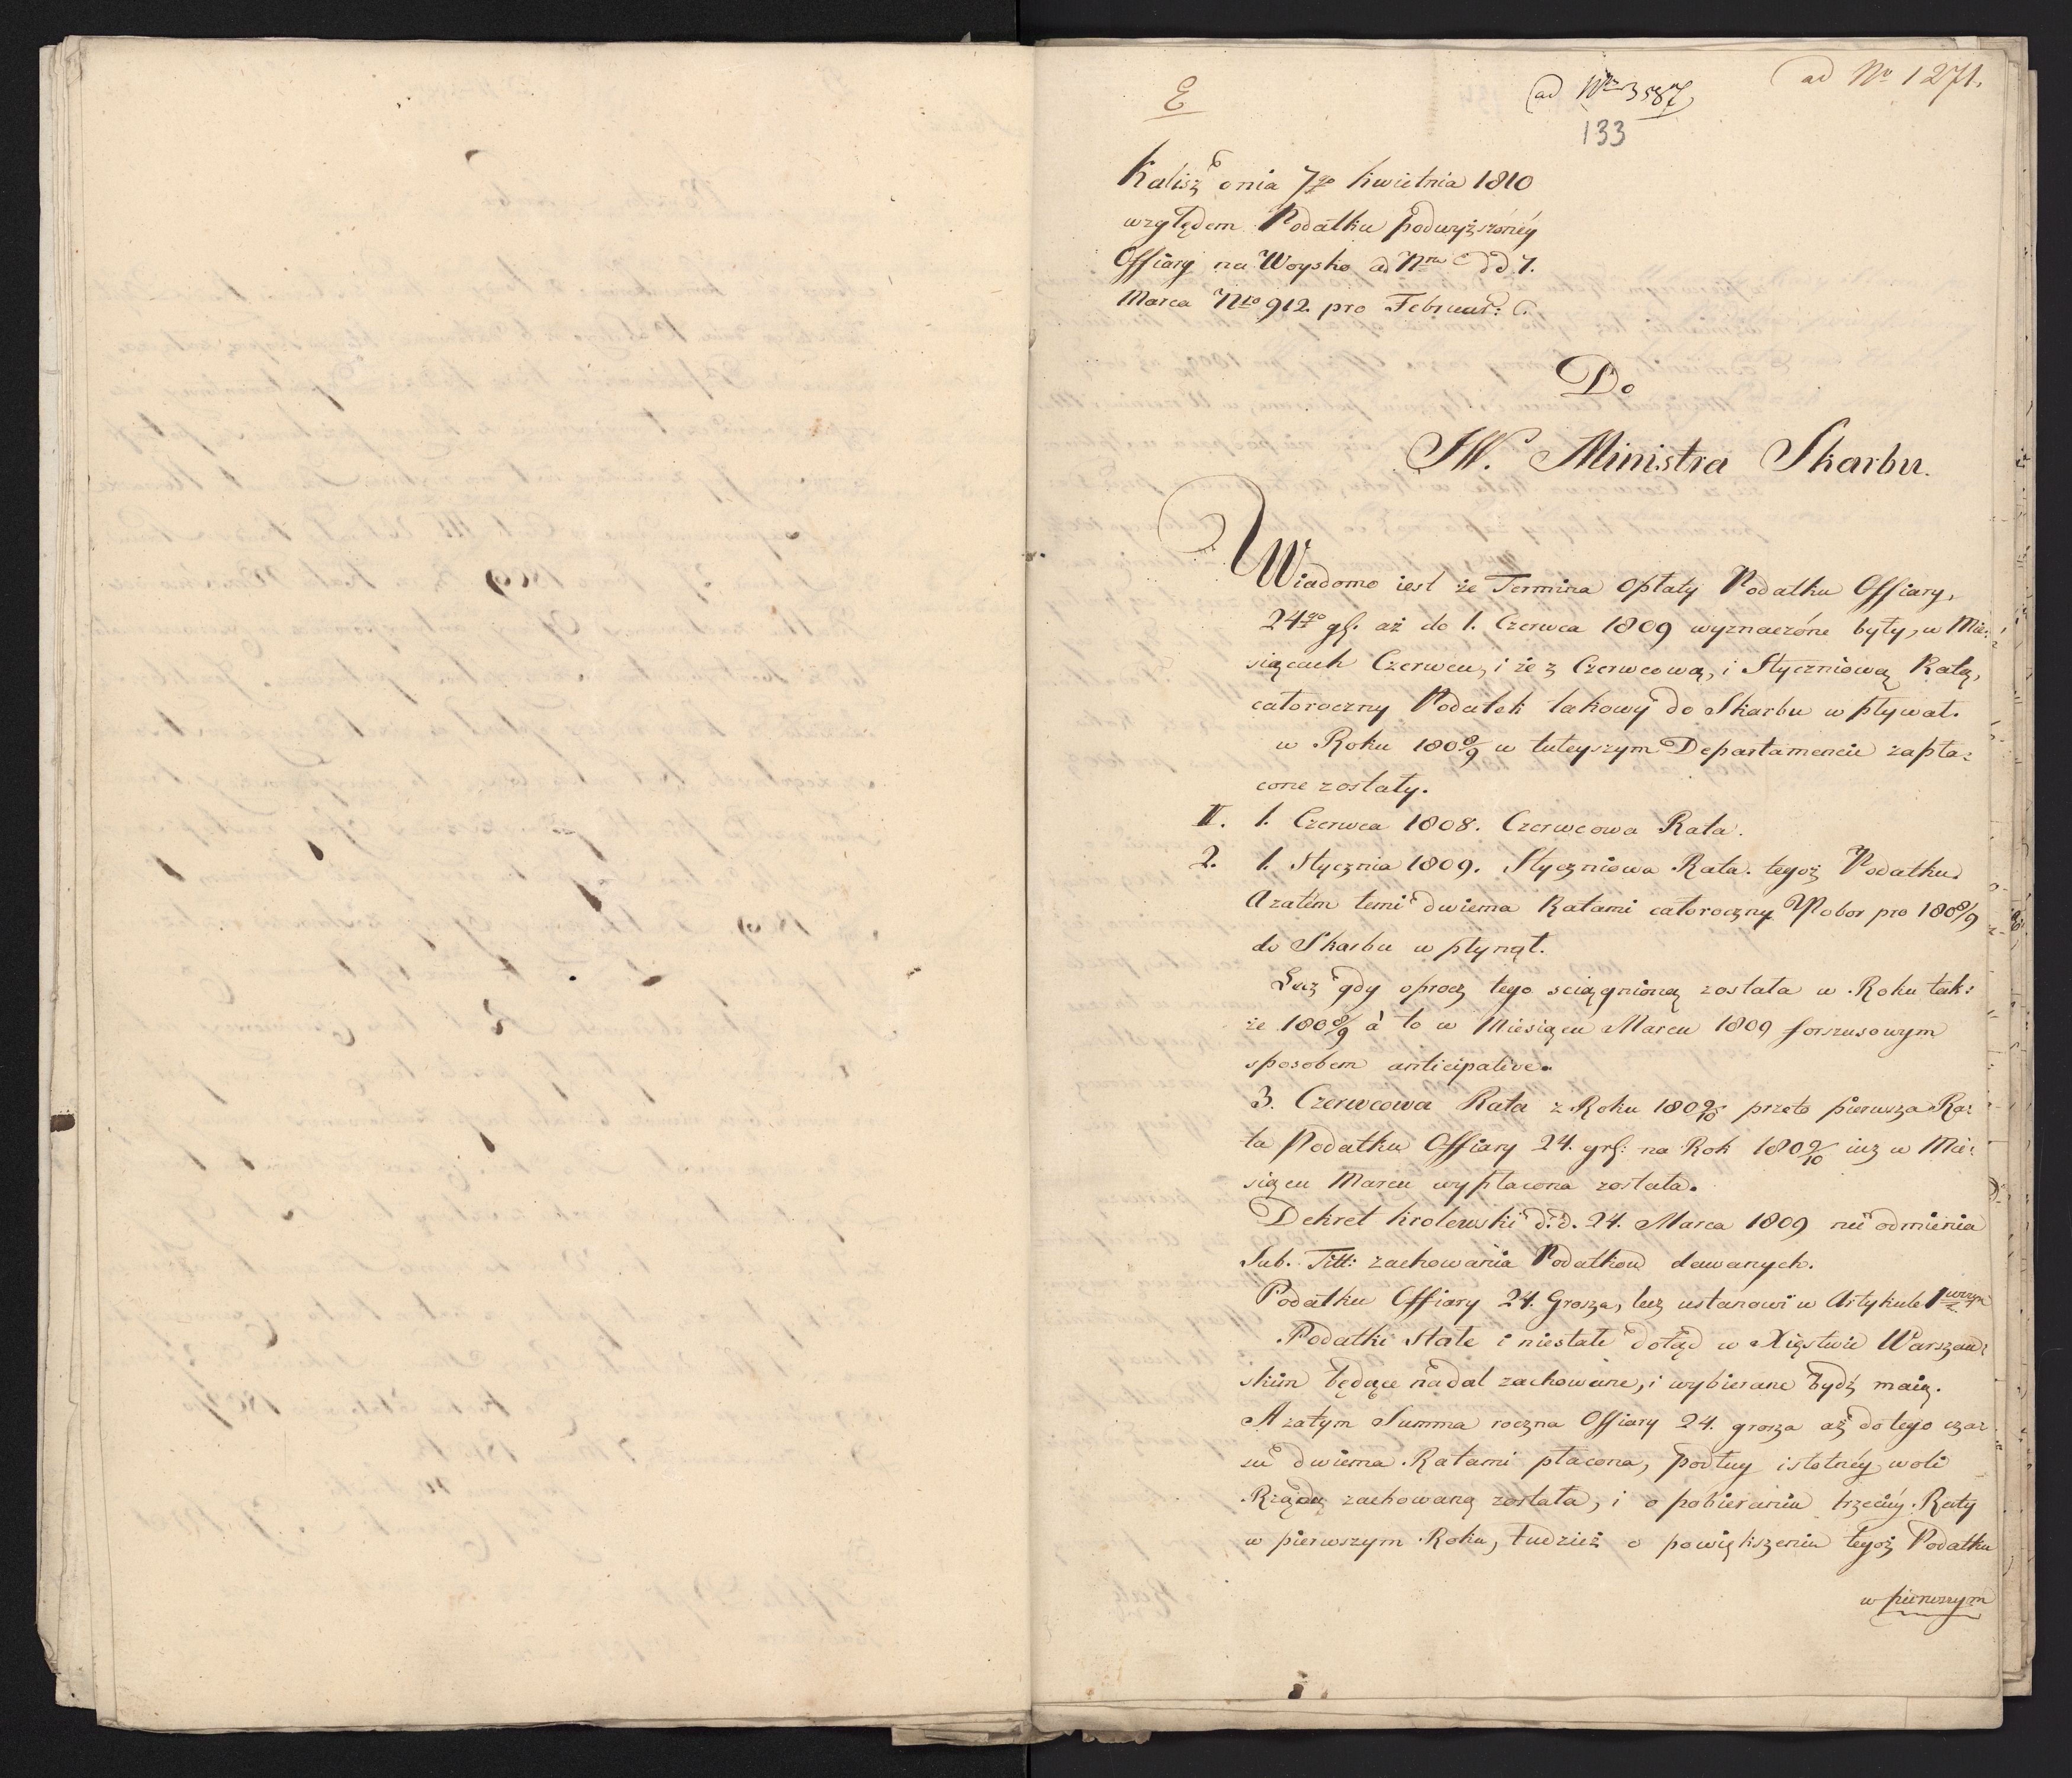 E
ad Nro 3587
ad No 1271.
133
Kalisz dnia 7go Kwietnia 1810
względem Podatku podwyższonéy
Offiary na Woysko ad Nrm C d d 7.
Marca Nro 912. pro Februar: C.
Do
JW. Ministra Skarbu.
Wiadomo iest że Termina Opłaty Podatku Offiary,
24go gl. aż do 1. Czerwca 1809 wyznaczóne były, w Mie:
siącach Czerwcu, i że z Czerwcową, i Styczniową Ratą,
całoroczny Podatek takowy do Skarbu wpływał.
w Roku 1808/9 w tuteyszym Departamencie zapła:
cone zostały.
II. 1. Czerwca 1808. Czerwcowa Rata.
2. 1. Stycznia 1809. Styczniowa Rata. tegoż Podatku.
A zatém temi dwiema Ratami całoroczny Pobor pro 1808/9
do Skarbu wpłynął.
Lecz gdy oprocz tego sciągnioną została w Roku tak:
że 1808/9 à to w Miesiącu Marcu 1809 forszusowym
sposobem anticipative.
3. Czerwcowa Rata z Roku 1809/10 przeto pierwsza Ra:
ta Podatku Offiary 24. grl: na Rok 1809/10 iuz w Mie:
siącu Marcu wypłacona została.
Dekret Krolewski d. d. 24. Marca 1809 nie odmienia
Sub. Titt: zachowania Podatkow dawanych.
Podatku Offiary 24. Grosza, lecz ustanowi w Artykule 1wszym
Podatki Stałe i niestałe dotąd w Xięstwie Warszaw:
skim będące nadal zachowane, i wybierane bydź maią.
A zatym Summa roczna Offiary 24. grosza aż do tego cza:
su dwiema Ratami płacona, podług istotnéy woli
Rządu zachowaną została, i o pobieraniu trzeciéy Raty
w pierwszym Roku, tudzież o powiększeniu tegoż Podatku
w pierwszym